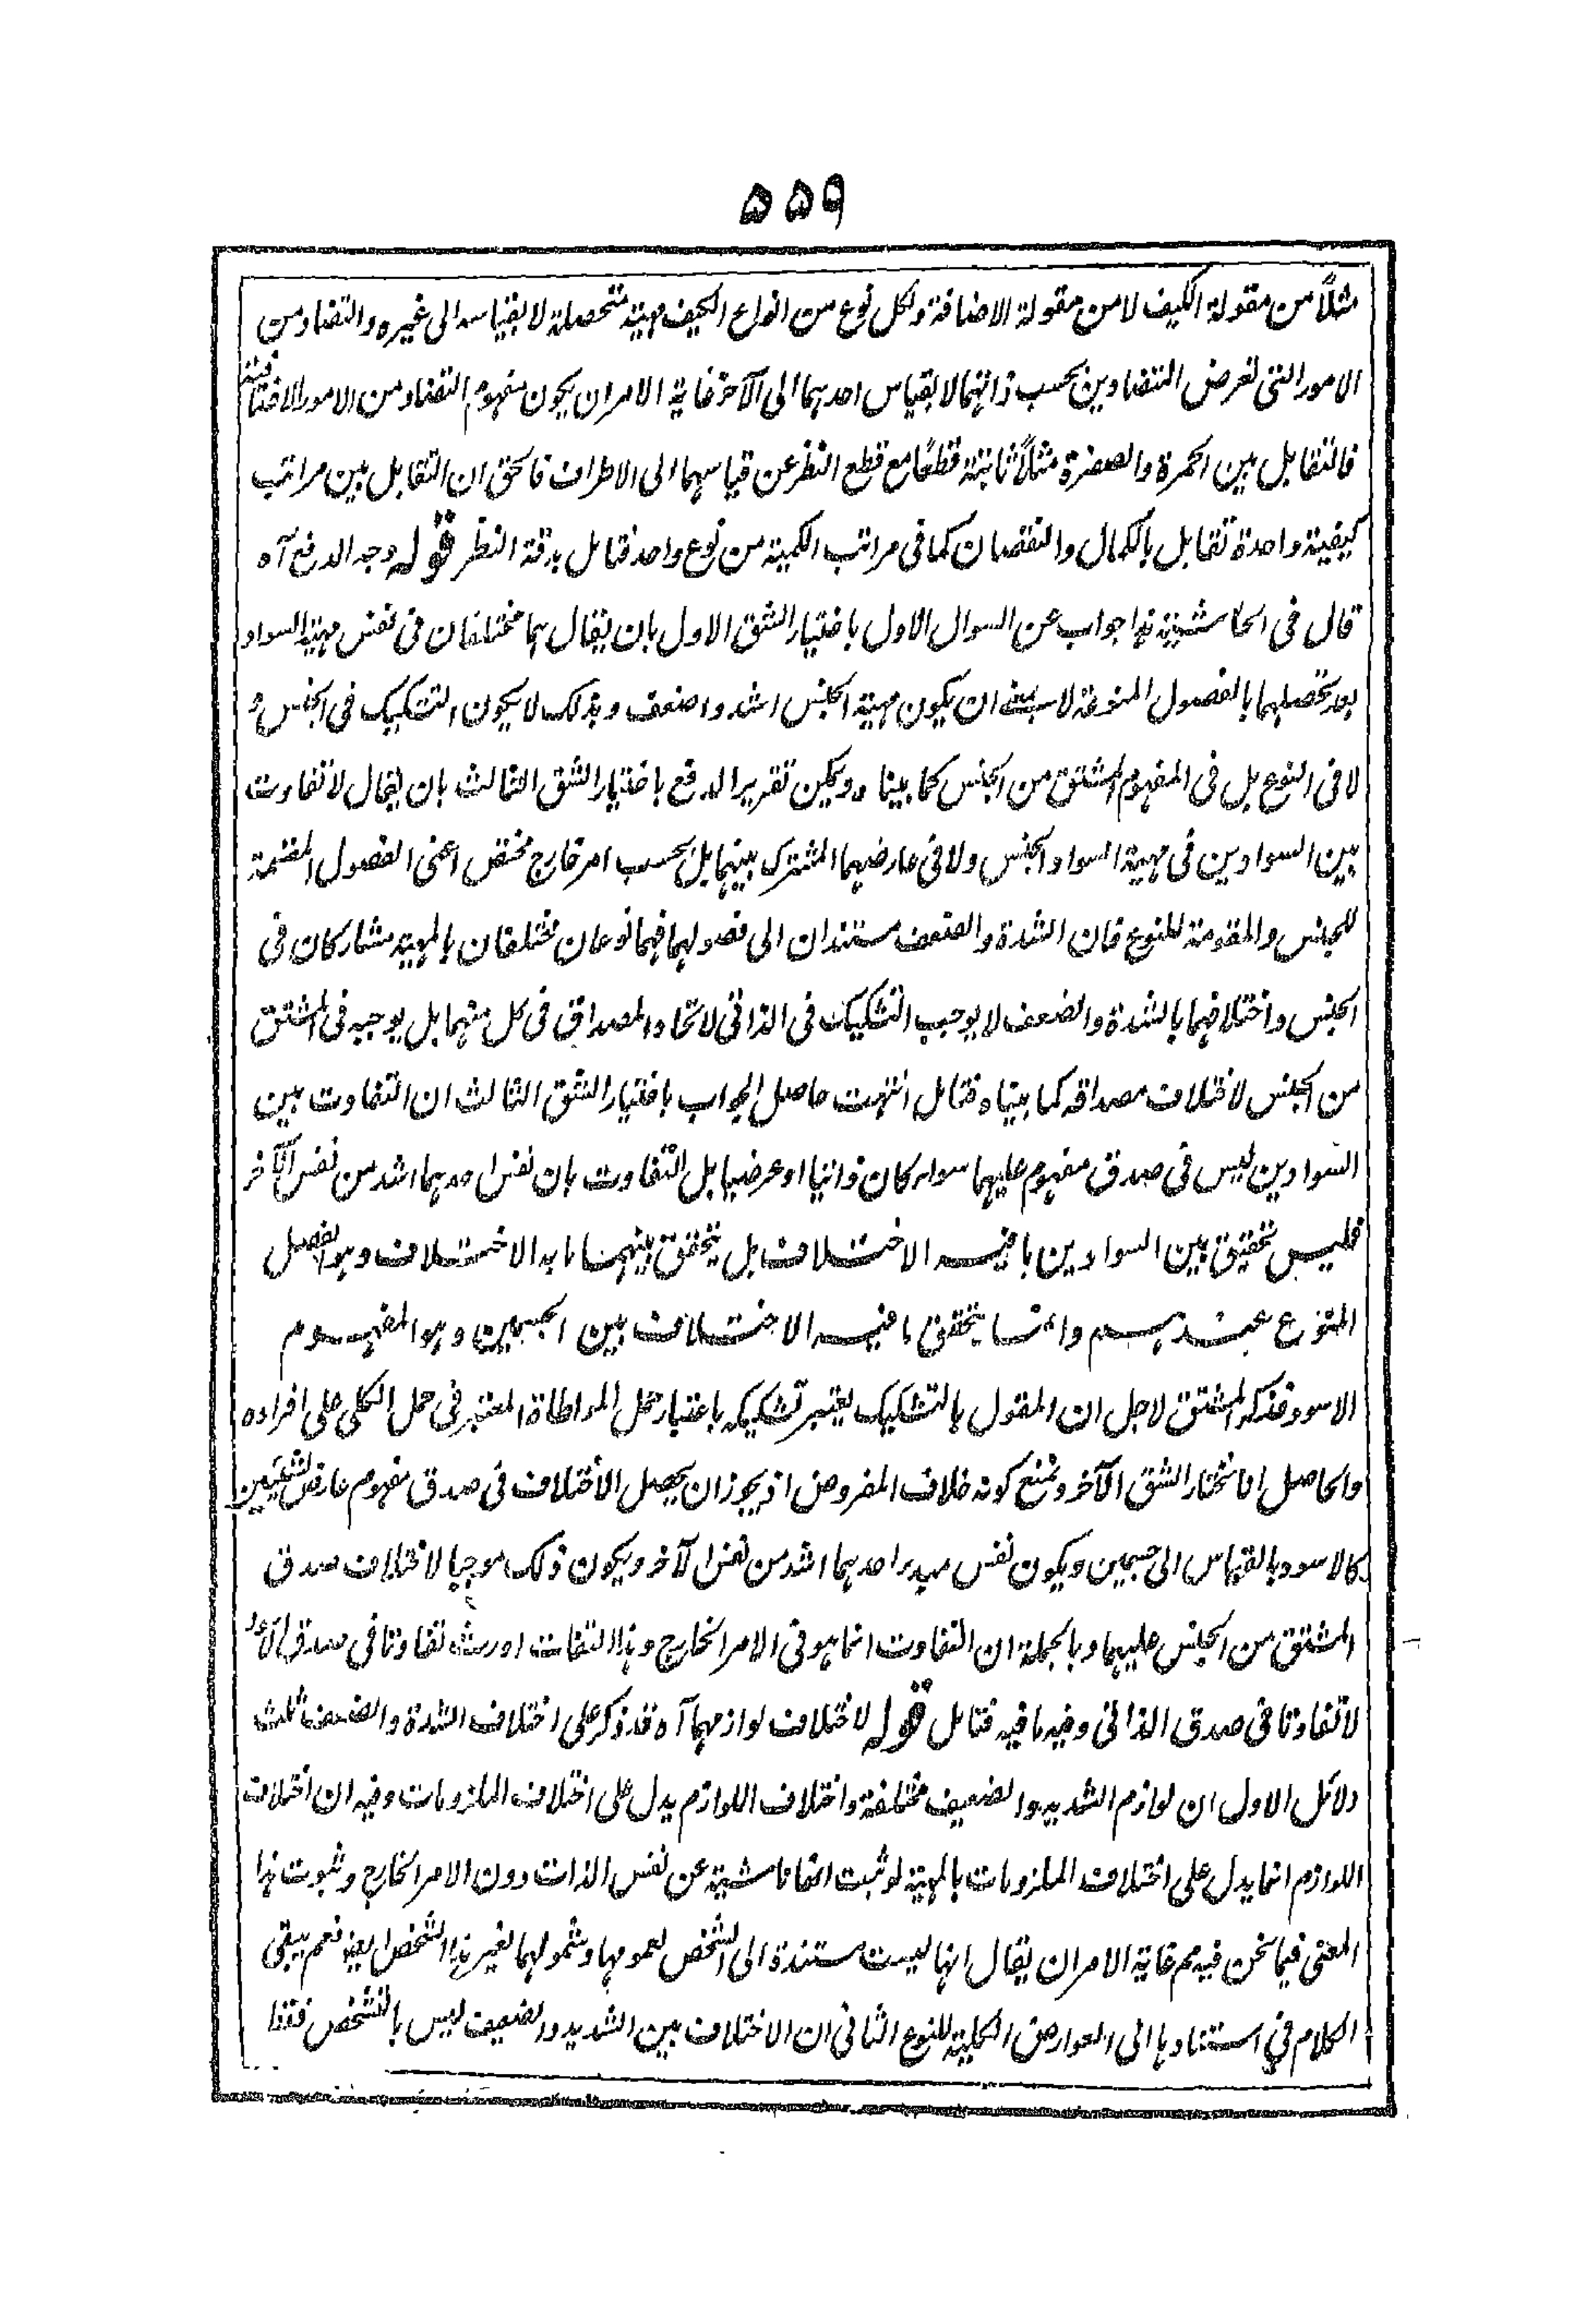 ۵۵۹
مثلاً من مقولة الكيف لا من مقولة الاضافة ولكل نوع من انواع الكيف مهية متحصلة لا بقياسه الى غيره والتضاد من
الامور التى تعرض المتضادين بحسب ذاتهما لا بقياس احدهما الى الآخر غاية الامر ان يكون مفهوم التضاد من الامور الاضافية
فالتقابل بين الحمرة والصفرة مثلاً ثابتة قطعًا مع قطع النظر عن قياسهما الى الاطراف فالحق ان التقابل بين مراتب
كيفية واحدة تقابل بالكمال والنقصان كما فى مراتب الكمية من نوع واحد فتامل بدقة النظر قوله وجه الدفع آه
قال فى الحاشية هذا جواب عن السوال الاول باختيار الشق الاول بان يقال هما مختلفان فى نفس مهية السواد
بعد تحصلهما بالفصول المنوعة لا بمعنى ان يكون مهية الجنس اشد واضعف وبذلك لا يكون التشكيك فى الجنس و
لا فى النوع بل فى المفهوم المشتق من الجنس كما بيناه ويمكن تقرير الدفع باختيار الشق الثالث بان يقال لا تفاوت
بين السوادين فى مهية السواد الجنس ولا فى عارضهما المشترك بينهما بل بحسب امر خارج مختص اعنى الفصول المقسمة
للجنس والمقومة للنوع فان الشدة والضعف مستندان الى فصولهما فهما نوعان مختلفان بالمهية مشاركان فى
الجنس واختلافهما بالشدة والضعف لا يوجب التشكيك فى الذاتى لاتحاد المصداق فى كل منهما بل يوجبه فى المشتق
من الجنس لاختلاف مصداقه كما بيناه فتامل انتهت حاصل الجواب باختيار الشق الثالث ان التفاوت بين
السوادين ليس فى صدق مفهوم عليهما سواء كان ذاتيا او عرضيا بل التفاوت بان نفس احدهما اشد من نفس الآخر
فليس تحقيق بين السوادين ما فيه الاختلاف بل يتحقق بينهما ما به الاختلاف وهو الفصل
المتنوع عندهم وانما يتحقق ما فيه الاختلاف بين الجسمين وهو المفهوم
الاسود فذكر المشتق لاجل ان المقول بالتشكيك يعتبر تشكيكه باعتبار حمل المواطاة المعتبر فى حمل الكلى على افراده
والحاصل انا نختار الشق الآخر ونمنع كونه خلاف المفروض اذ يجوز ان يحصل الاختلاف فى صدق مفهوم عارض لشيئين
كالاسود بالقياس الى جسمين ويكون نفس احدهما اشد من نفس الآخر ويكون ذلك موجبا لاختلاف صدق
المشتق من الجنس عليهما وبالجملة ان التفاوت انما هو فى الامر الخارج وهذا التفات اورث تفاوتا فى صدق
لا تفاوتا فى صدق الذاتى وفيه ما فيه فتامل قوله لاختلاف لوازمهما آه قد ذكر على اختلاف الشدة والضعف ثلث
دلائل الاول ان لوازم الشديد والضعيف مختلفة واختلاف اللوازم يدل على اختلاف الملزومات وفيه ان اختلاف
اللوازم انما يدل على اختلاف الملزومات بالمهية لو ثبت انها ناشية عن نفس الذات دون الامر الخارج وثبوت هذا
المعنى فيما نحن فيه مم غاية الامر ان يقال انها ليست مستندة الى الشخص لعمومها وشمولهما لغير هذا الشخص ايضا نعم يبقى
الكلام في استنادها الى العوارض الكلية للنوع الثانى ان الاختلاف بين الشديد والضعيف ليس بالتشخص فقط